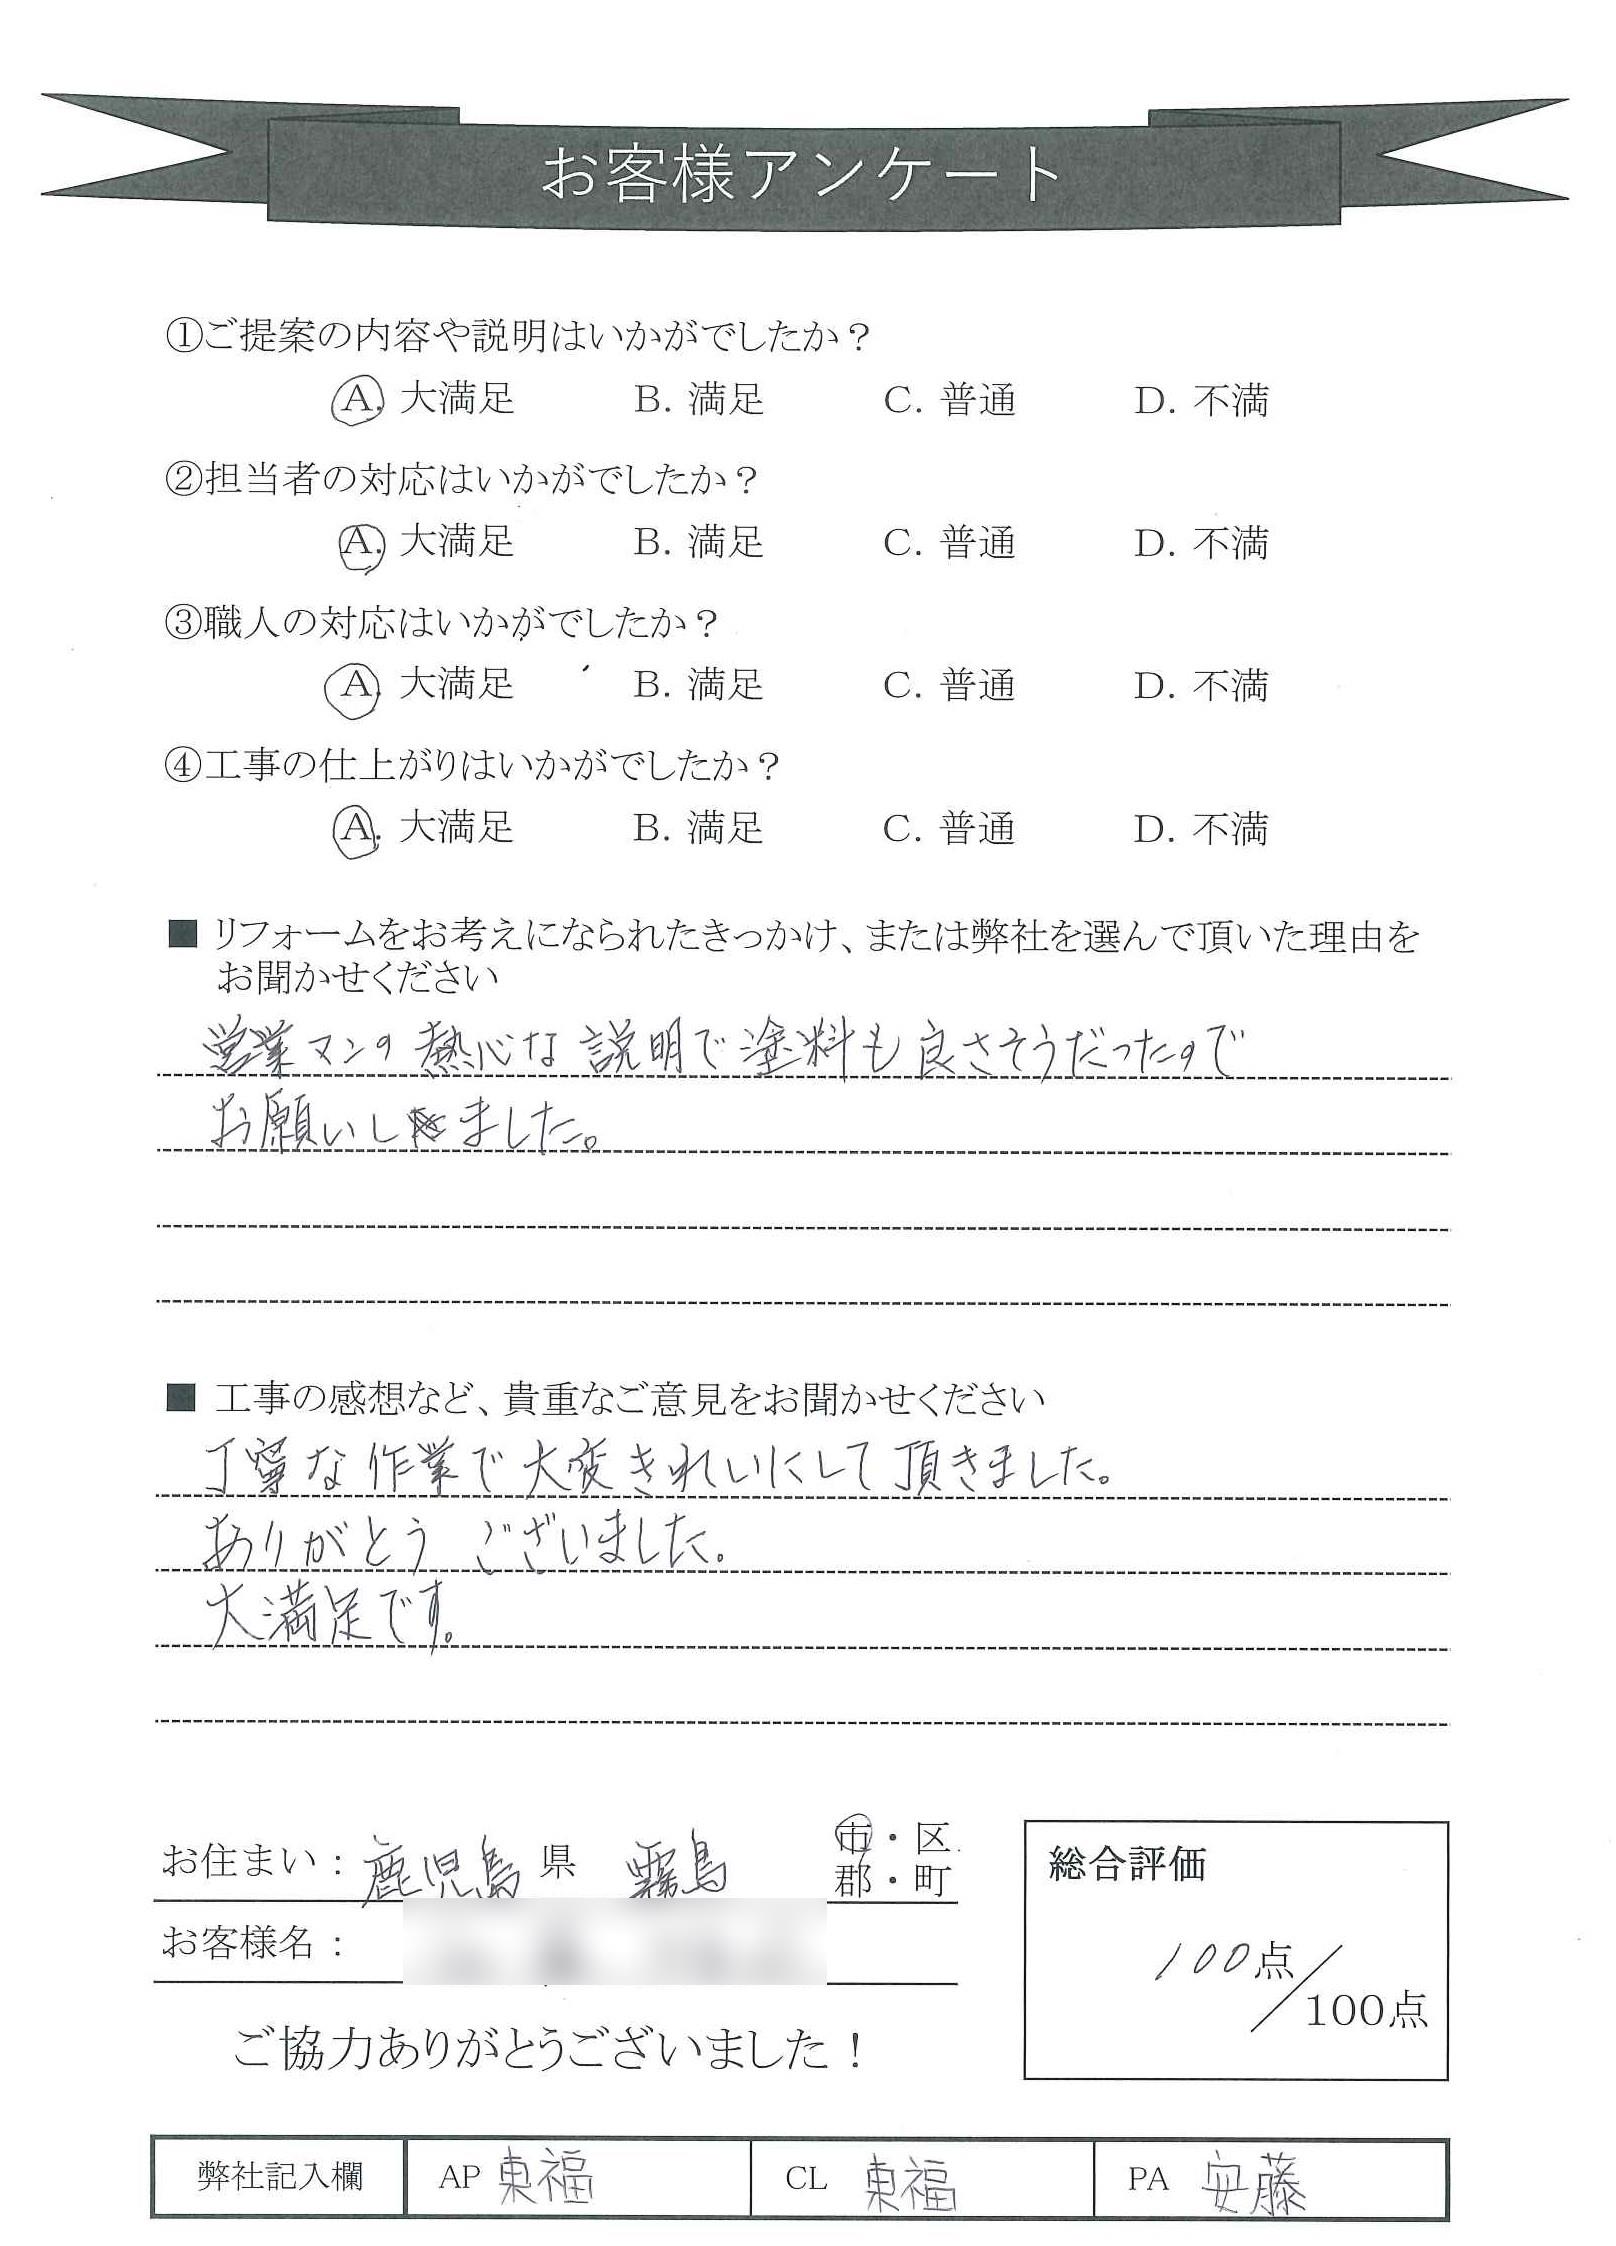 お客様アンケート
①ご提案の内容や説明はいかがでしたか？
A. 大満足 B. 満足 C. 普通 D. 不満
②担当者の対応はいかがでしたか？
A. 大満足 B. 満足 C. 普通 D. 不満
③職人の対応はいかがでしたか？
A. 大満足 B. 満足 C. 普通 D. 不満
④工事の仕上がりはいかがでしたか？
A. 大満足 B. 満足 C. 普通 D. 不満
■ リフォームをお考えになられたきっかけ、または弊社を選んで頂いた理由を
お聞かせください
営業マンの熱心な説明で塗料も良さそうだったので
お願いしました。
■ 工事の感想など、貴重なご意見をお聞かせください
丁寧な作業で大変きれいにして頂きました。
ありがとう ございました。
大満足です。
お住まい： 鹿児島 県 霧島 市・区
郡・町
お客様名：
総合評価
100点／100点
ご協力ありがとうございました！
弊社記入欄 AP 東福 CL 東福 PA 安藤